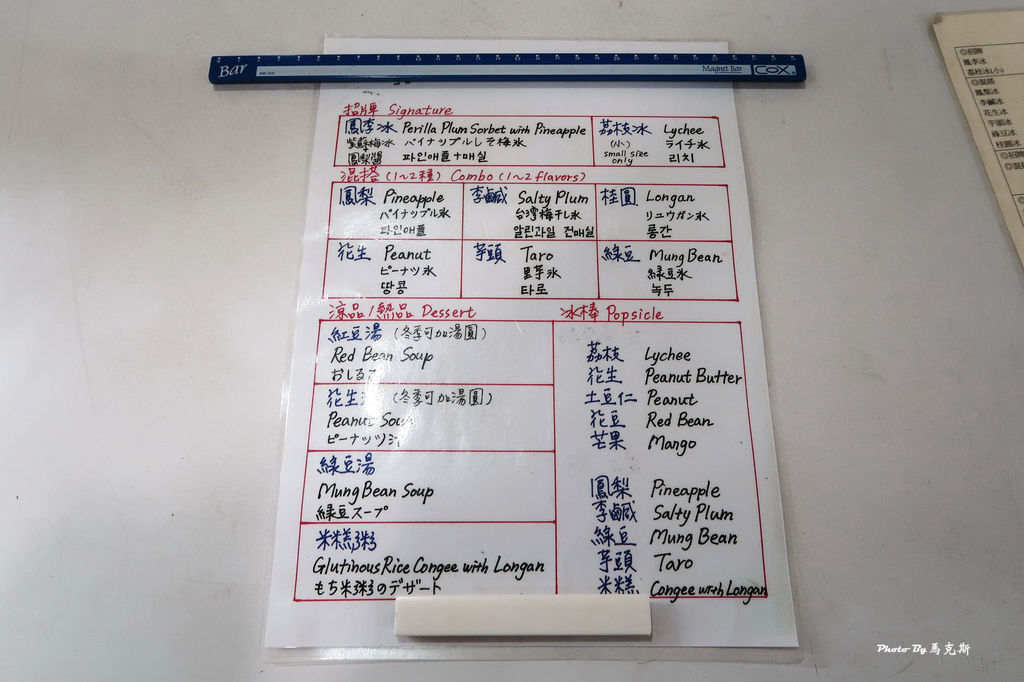 Bar
Magnet Bar COX
招牌 Signature
鳳李冰 Perilla Plum Sorbet with Pineapple
紫蘇梅冰 パイナップルしそ梅氷
鳳梨醬 파인애플+매실
荔枝冰 Lychee
(小) ライチ氷
small size only 리치
混搭(1~2種) Combo (1~2 flavors)
鳳梨 Pineapple
パイナップル氷
파인애플
李鹹 Salty Plum
台湾梅干し氷
알린과일 전매실
桂圓 Longan
リュウガン氷
롱간
花生 Peanut
ピーナツ氷
땅콩
芋頭 Taro
里芋氷
타로
綠豆 Mung Bean
緑豆氷
녹두
涼品/熱品 Dessert
紅豆湯 (冬季可加湯圓)
Red Bean Soup
おしるこ
花生湯 (冬季可加湯圓)
Peanut Soup
ピーナッツ汁
綠豆湯
Mung Bean Soup
緑豆スープ
米糕粥
Glutinous Rice Congee with Longan
もち米粥のデザート
冰棒 Popsicle
荔枝 Lychee
花生 Peanut Butter
土豆仁 Peanut
花豆 Red Bean
芒果 Mango
鳳梨 Pineapple
李鹹 Salty Plum
綠豆 Mung Bean
芋頭 Taro
米糕 Congee with Longan
◎招牌
鳳李冰
荔枝冰(小)
◎混搭
鳳梨冰
李鹹冰
花生冰
芋頭冰
綠豆冰
桂圓冰
◎招牌
◎混
Photo By 馬克斯